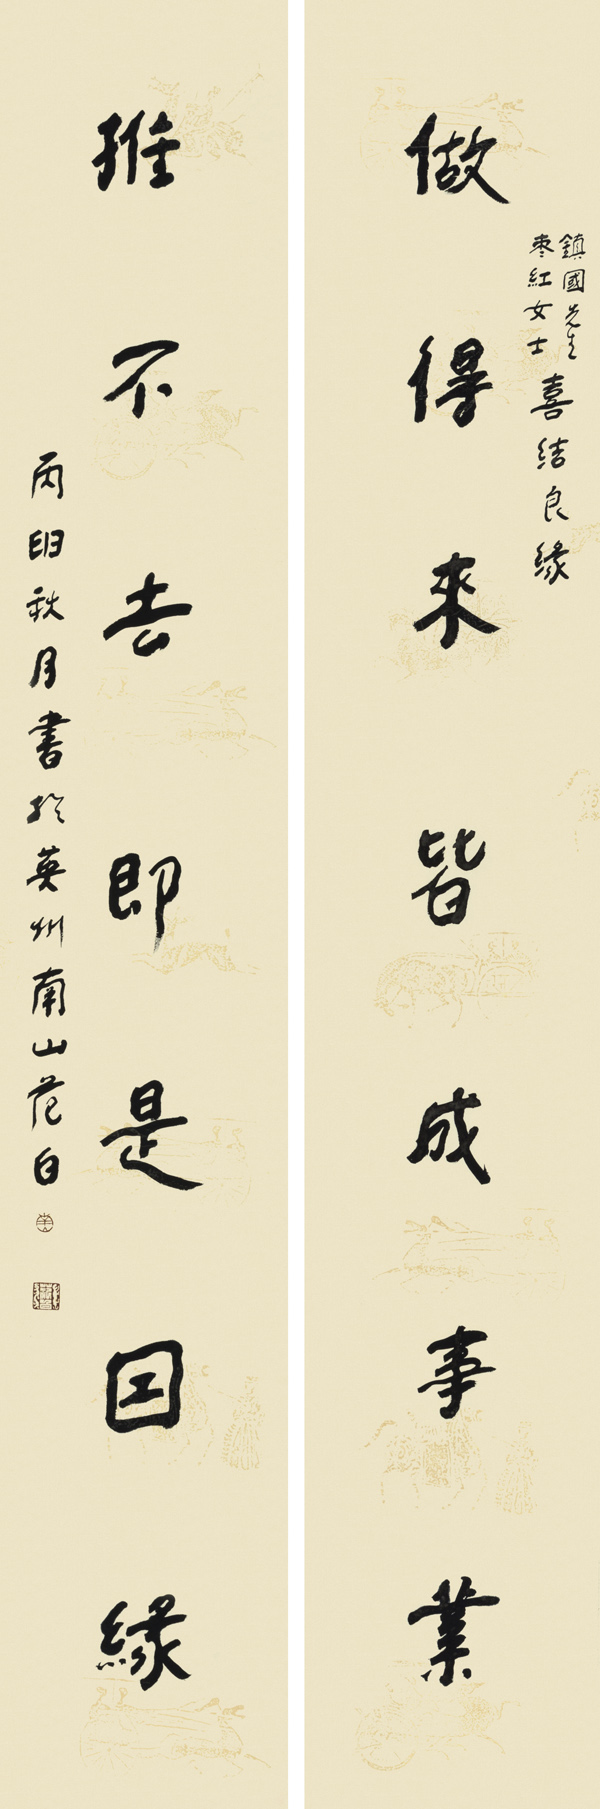 鎮國先生
棗紅女士
喜結良緣
做得來皆成事業
推不去即是因緣
丙申秋月書於英州南山范白